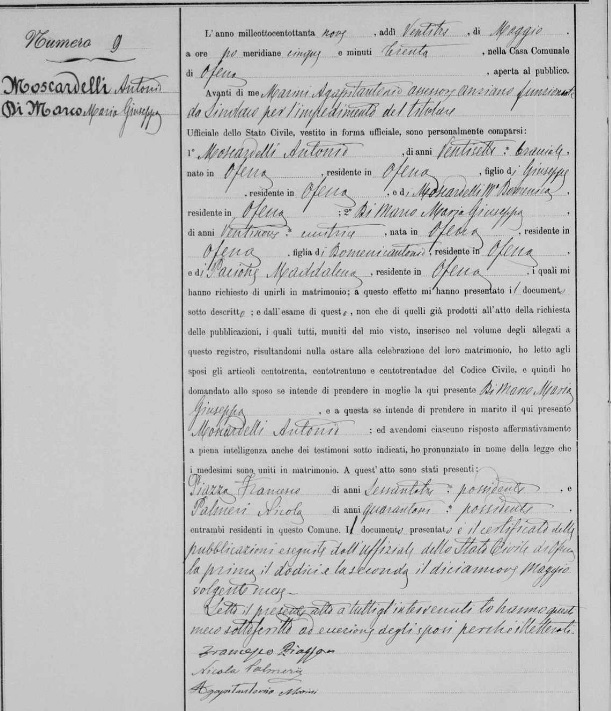 Numero 9
Moscardelli Antonio
Di Marco Maria Giuseppa
L'anno milleottocentottanta nove, addì Ventitre, di Maggio
a ore po meridiane cinque e minuti trenta, nella Casa Comunale
di Ofena, aperta al pubblico.
Avanti di me Marini Agapitantonio assessore anziano funzionan
da Sindaco per l'impedimento del titolare
Ufficiale dello Stato Civile, vestito in forma ufficiale, sono personalmente comparsi:
1° Moscardelli Antonio, di anni Ventisette,
nato in Ofena, residente in Ofena, figlio di Giuseppe
, residente in Ofena, e di Moscardelli Domenica
residente in Ofena; 2° Di Marco Maria Giuseppa
di anni Ventinove, nata in Ofena, residente in
Ofena, figlia di Domenicantonio, residente in Ofena
e di Maddalena, residente in Ofena, i quali mi
hanno richiesto di unirli in matrimonio; a questo effetto mi hanno presentato il documento
sotto descritto; e dall'esame di questo, non che di quelli già prodotti all'atto della richiesta
delle pubblicazioni, i quali tutti, muniti del mio visto, inserisco nel volume degli allegati a
questo registro, risultandomi nulla ostare alla celebrazione del loro matrimonio, ho letto agli
sposi gli articoli centotrenta, centotrentuno e centotrentadue del Codice Civile, e quindi ho
domandato allo sposo se intende di prendere in moglie la qui presente Di Marco Maria
Giuseppa, e a questa se intende di prendere in marito il qui presente
Moscardelli Antonio; ed avendomi ciascuno risposto affermativamente
a piena intelligenza anche dei testimoni sotto indicati, ho pronunziato in nome della legge che
i medesimi sono uniti in matrimonio. A quest'atto sono stati presenti:
Piazza Francesco di anni Sessantatre, possidente, e
Palmeri Nicola di anni quarantotto, possidente
entrambi residenti in questo Comune. Il documento presentato è il certificato delle
pubblicazioni eseguite dall'uffiziale dello Stato Civile di Ofena
la prima il dodici e la seconda il diciannove Maggio
volgente mese.
Letto il presente atto a tutti gl'intervenuti lo hanno questi
meco sottoscritto ad eccezione degli sposi perchè illetterati
Francesco Piazza
Nicola Palmeri
Agapitantonio Marini